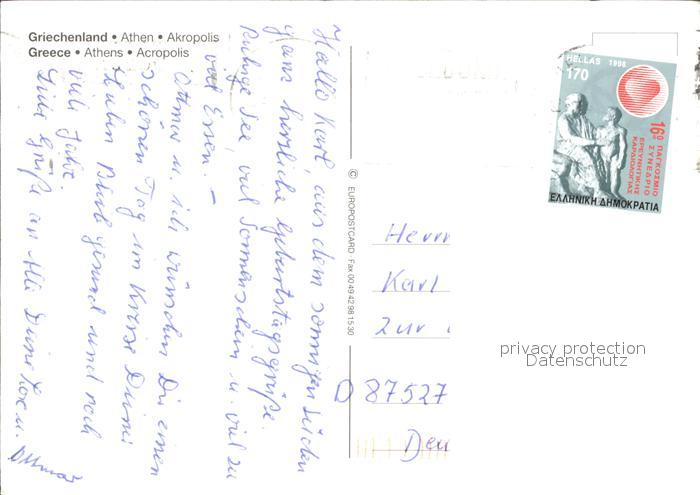 Griechenland • Athen • Akropolis
Greece • Athens • Acropolis
Hallo Karl aus dem sonnigen Süden
ganz herzliche Geburtstagsgrüße.
Ruhige See, viel Sonnenschein u. viel zu
viel Essen. –
Othmar u. ich wünschen Dir einen
schönen Tag im Kreise Deiner
Lieben Bleib gesund und noch
viele Jahre.
Liebe Grüße an Alle Deine u.
Othmar
© EUROPOSTCARD · Fax 00 49 42 98 15 30
HELLAS 1998
170
16º ΠΑΓΚΟΣΜΙΟ
ΣΥΝΕΔΡΙΟ
ΕΡΕΥΝΗΤΙΚΗΣ
ΚΑΡΔΙΟΛΟΓΙΑΣ
ΕΛΛΗΝΙΚΗ ΔΗΜΟΚΡΑΤΙΑ
Herrn
Karl
Zur
D 87527
Deu
privacy protection
Datenschutz